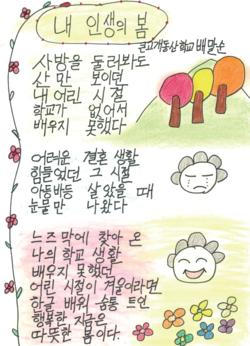 내 인생의 봄
큰고개동산학교 배말순
사방을 둘러봐도
산만 보이던
내 어린 시절
학교가 없어서
배우지 못했다
어려운 결혼 생활
힘들었던 그 시절
아둥바둥 살았을 때
눈물만 나왔다
느즈막에 찾아 온
나의 학교 생활
배우지 못했던
어린 시절이 겨울이라면
한글 배워 숨통 트인
행복한 지금은
따뜻한 봄이다.